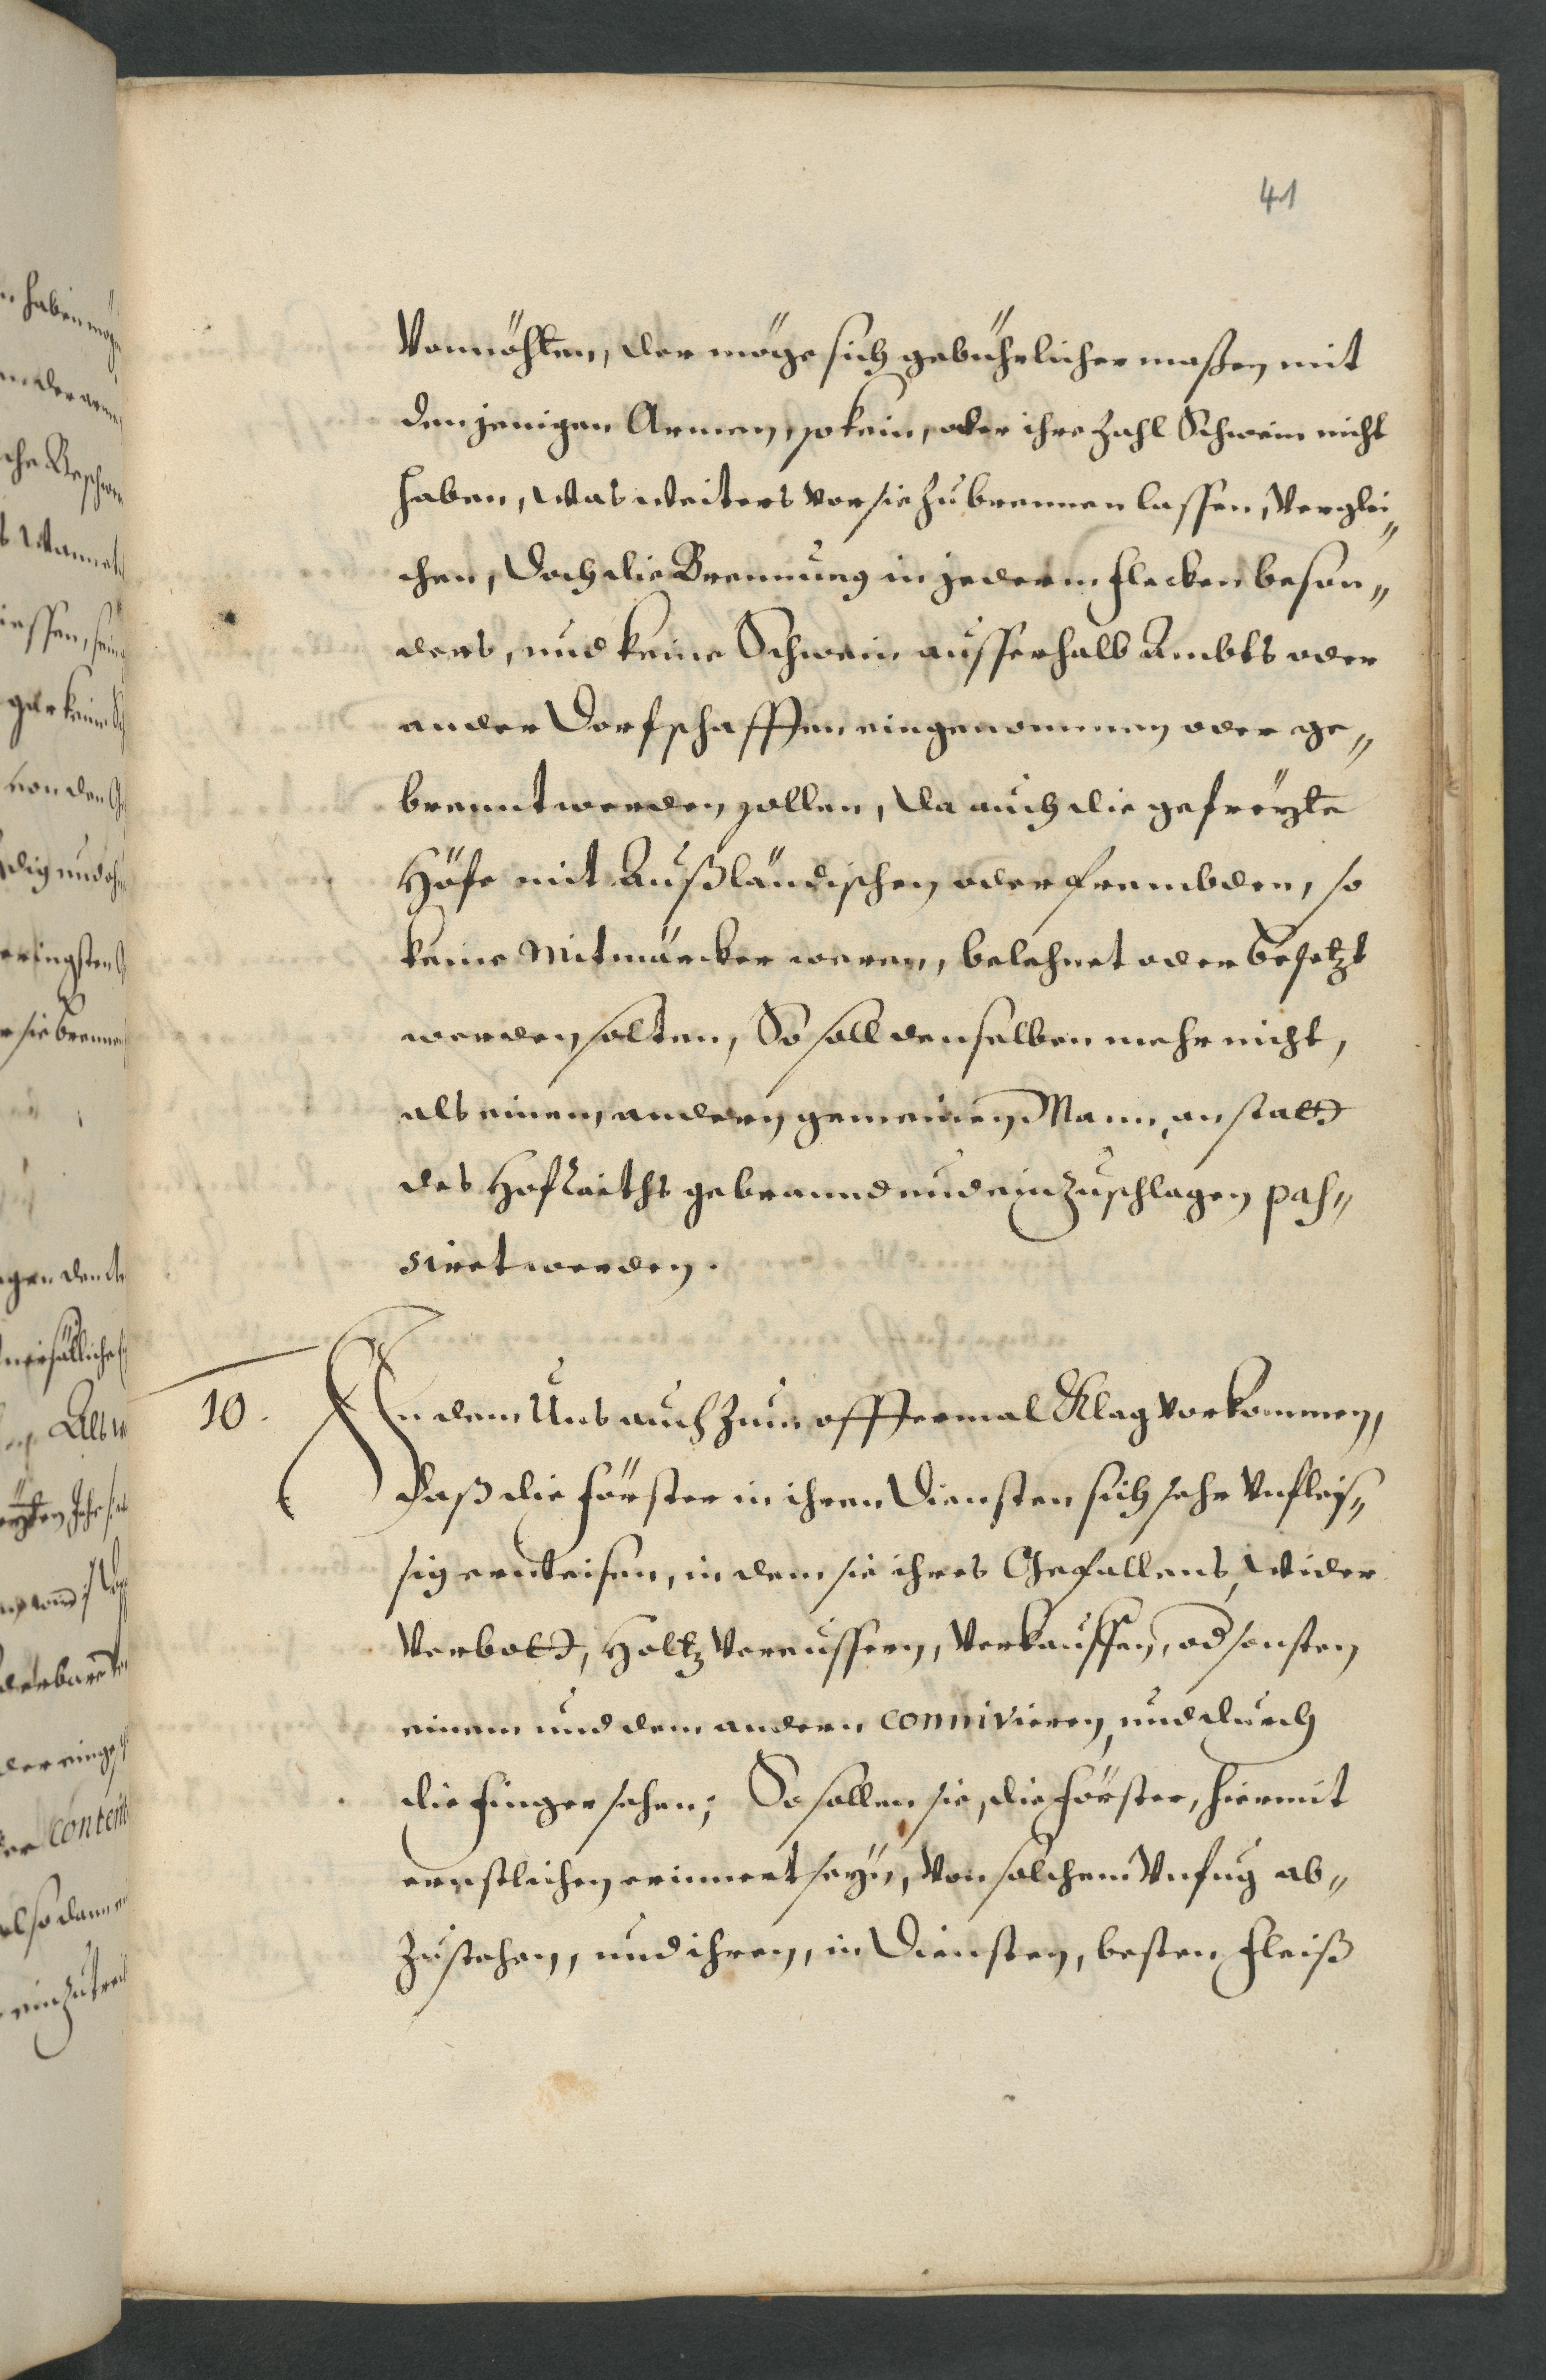 41
Vonnöhten, der möge sich gebührlicher maßen mit
denjenigen Armen, so kein, oder ihre Zahl Schwein nicht
haben, was weiters vor sie zu brennen lassen, verglei„
chen, Doch die Brennung in jederm flecken beson„
ders, und keine Schwein ausserhalb Ambts oder
ander Dorfschafften eingenommen oder ge„
brennt werden sollen, Da auch die gefreyte
Höfe mit Außländischen oder frembden, so
keine Mitmärcker weren, belehnet oder besetzt
werden solten, So soll denselben mehr nicht,
als einem andern gemeinen Mann, anstatt
des Hofraiths gebrannd und einzuschlagen pas„
siret werden.
10. In dem Uns auch zum offtermal Klag vorkommen,
Daß die Förster in ihren Diensten sich sehr Unfleis„
sig erweisen, in dem sie ihres Gefallens, wider
Verbott, Holtz vereussern, verkauffen, od sonsten
einem und dem andern connivieren, und durch
die finger sehen; So sollen sie, die Förster, hiermit
ernstlichen erinnert seyn, Von solchem Unfug ab„
zustehen, und ihren, in Diensten, besten fleiß